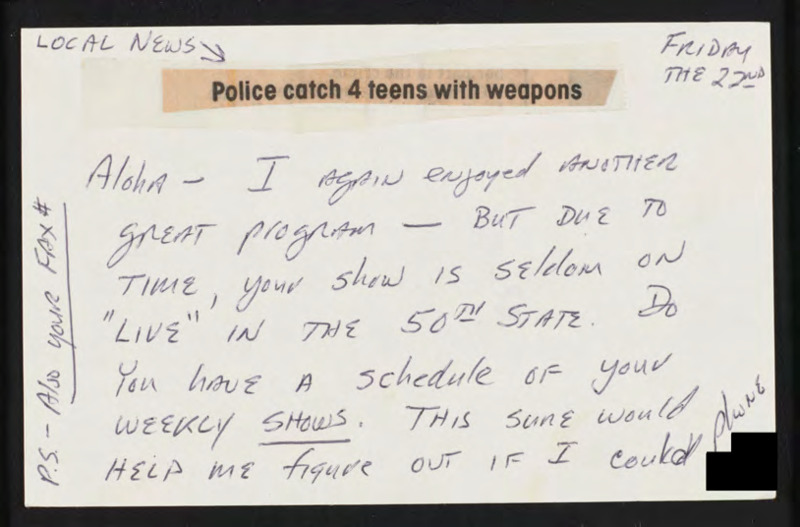 LOCAL NEWS
FRIDAY
THE 22ND
Police catch 4 teens with weapons
Aloha - I AGAIN enjoyed ANOTHER
GREAT program - BUT DUE TO
TIME, your show IS Seldom ON
"LIVE" IN THE 50TH STATE. DO
You HAVE A schedule OF your
WEEKLY SHOWS. THIS SURE would
HELP ME figure OUT IF I could phone
P.S. - Also your FAX #